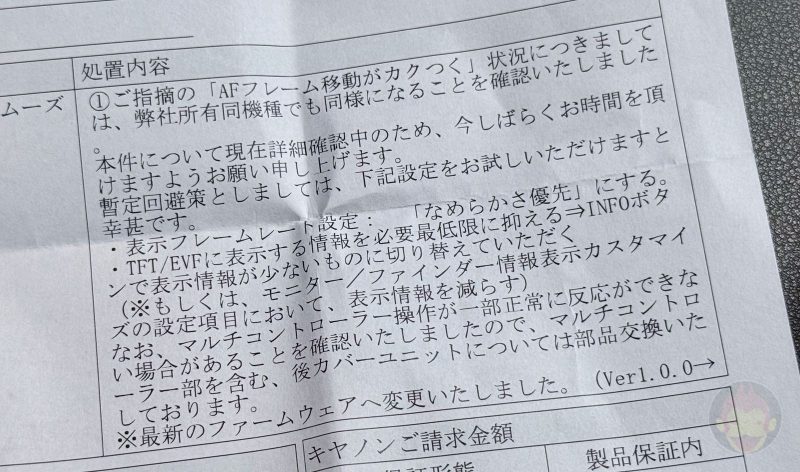 処置内容
ムーズ
①ご指摘の「AFフレーム移動がカクつく」状況につきまして
は、弊社所有同機種でも同様になることを確認いたしました
。
本件について現在詳細確認中のため、今しばらくお時間を頂
けますようお願い申し上げます。
暫定回避策としましては、下記設定をお試しいただけますと
幸甚です。
・表示フレームレート設定：　「なめらかさ優先」にする。
・TFT/EVFに表示する情報を必要最低限に抑える⇒INFOボタ
ンで表示情報が少ないものに切り替えていただく
（※もしくは、モニター／ファインダー情報表示カスタマイ
ズの設定項目において、表示情報を減らす）
なお、マルチコントローラー操作が一部正常に反応ができな
い場合があることを確認いたしましたので、マルチコントロ
ーラー部を含む、後カバーユニットについては部品交換いた
しております。
※最新のファームウェアへ変更いたしました。（Ver1.0.0→
キヤノンご請求金額
保証形態
製品保証内